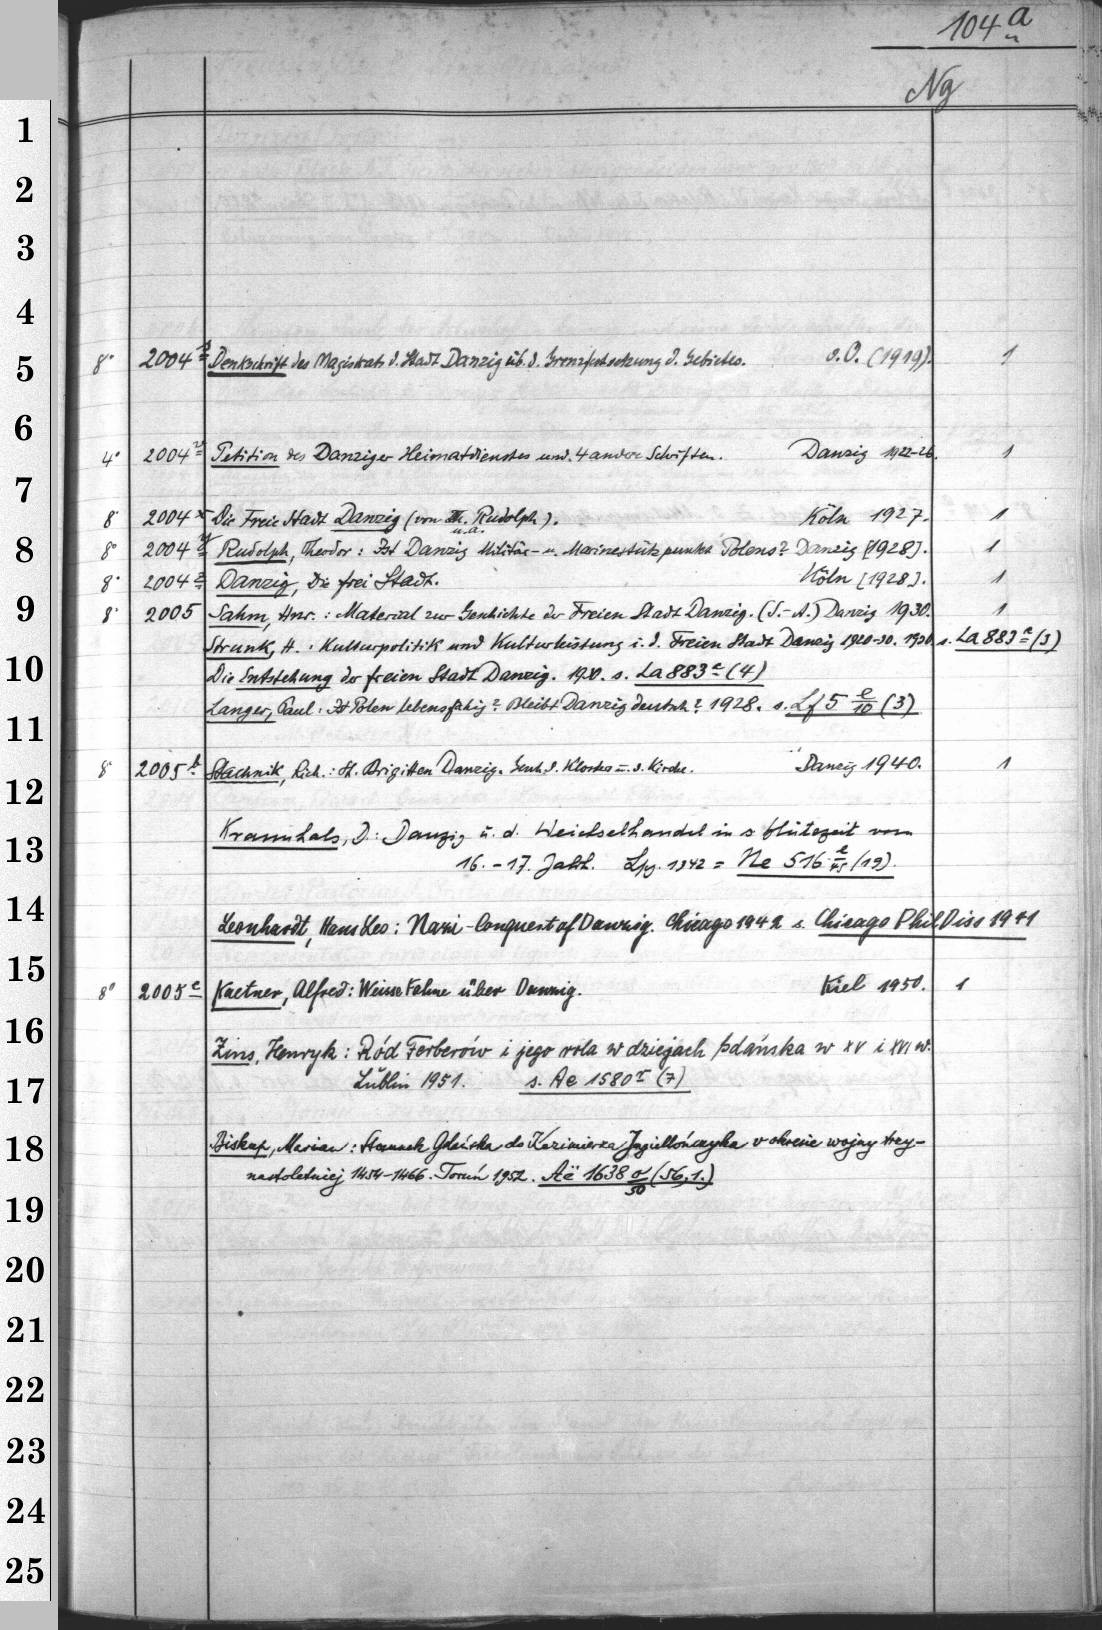 104 a
Ng
1
2
3
4
5
8° 2004 s Denkschrift des Magistrats d. Stadt Danzig üb. d. Grenzfestsetzung d. Gebietes. o.O. (1919). 1
6
4° 2004 Petition des Danziger Heimatdienstes und 4 andere Schriften. Danzig 1922-26. 1
7
8° 2004 x Die Freie Stadt Danzig (von Th. Rudolph). Köln 1927. 1
u.a.
8
8° 2004 y Rudolph, Theodor: Ist Danzig Militär- u. Marinestützpunkt Polens? Danzig [1928]. 1
8° 2004 z Danzig, Die frei Stadt. Köln [1928]. 1
9
8° 2005 Sahm, Hnr.: Material zur Geschichte der Freien Stadt Danzig. (S.-A.) Danzig 1930. 1
Strunk, H.: Kulturpolitik und Kulturleistung i. d. Freien Stadt Danzig 1920-30. 1930 s. La 883 e (3)
10
Die Entstehung der freien Stadt Danzig. 1920. s. La 883 e (4)
Langer, Paul: Ist Polen lebensfähig? Bleibt Danzig deutsch? 1928. s. Lf 5 e/10 (3)
11
8° 2005 b Stachnik, Rich.: St. Brigitten Danzig. Gesch. d. Klosters u. d. Kirche. Danzig 1940. 1
12
Krannhals, D.: Danzig u. d. Weichselhandel in s. Blütezeit vom
13
16.-17. Jahh. Lpg. 1942 = Ne 516 e/45 (19).
14
Leonhardt, Hans Leo: Nazi-Conquest of Danzig. Chicago 1942 s. Chicago Phil Diss 1941
15
8° 2005 c Kaetner, Alfred: Weisse Fahne über Danzig. Kiel 1950. 1
16
Zins, Henryk: Ród Ferberów i jego rola w dziejach Gdańska w XV i XVI w.
17
Lublin 1951. s. Ae 1580 r (7)
18
Biskup, Marian: Stosunek Gdańska do Kazimierza Jagiellończyka w okresie wojny trzy-
nastoletniej 1454-1466. Toruń 1952. Aë 1638 σ/50 (56,1.)
19
20
21
22
23
24
25